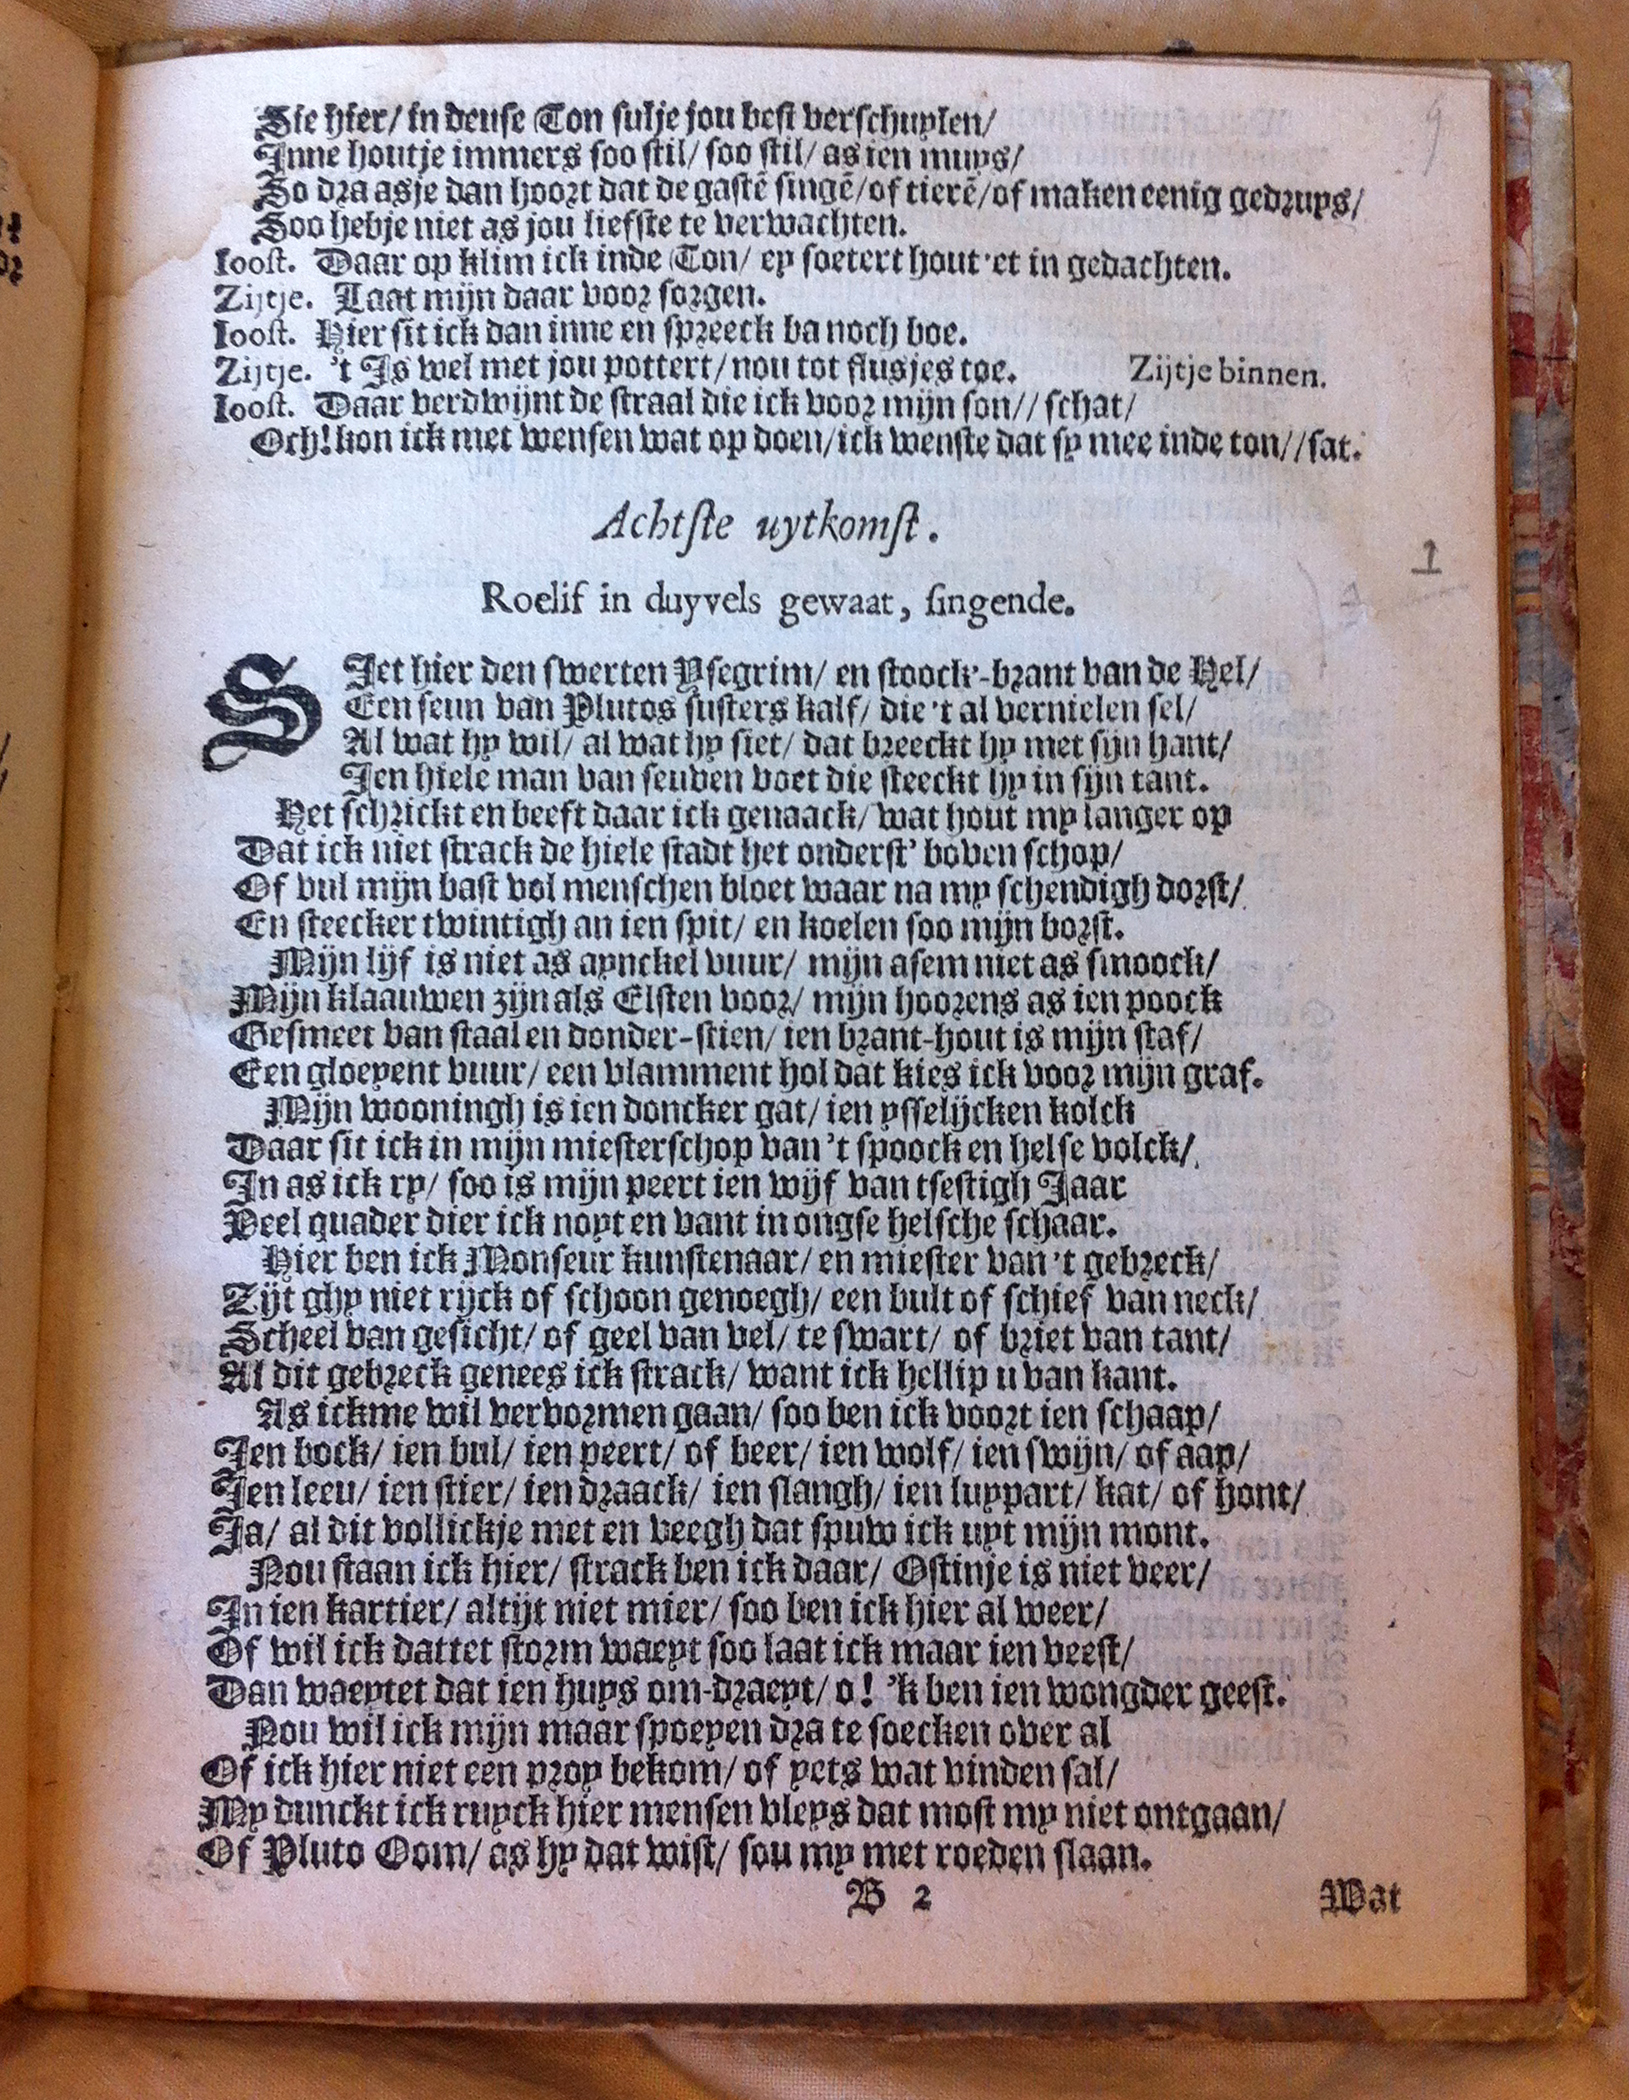 Sie hier/ in deuse Ton sulje jou best verschuylen/
Inne houtje immers soo stil/ soo stil/ as ien muys/
So dra asje dan hoort dat de gastē singē/of tierē/of maken eenig gedruys/
Soo hebje niet as jou liefste te verwachten.
Ioost. Daar op klim ick inde Ton/ ey soetert hout'et in gedachten.
Zijtje. Laat mijn daar voor sorgen.
Ioost. Hier sit ick dan inne en spreeck ba noch boe.
Zijtje. 't Is wel met jou pottert/ nou tot flusjes toe. Zijtje binnen.
Ioost. Daar verdwijnt de straal die ick voor mijn son// schat/
Och! kon ick met wensen wat op doen/ick wenste dat sy mee inde ton//sat.
Achtste uytkomst.
Roelif in duyvels gewaat, singende.
SIet hier den swerten Ysegrim/ en stoock-brant van de Hel/
Een seun van Plutos susters kalf/ die 't al vernielen sel/
Al wat hy wil/ al wat hy siet/ dat breeckt hy met sijn hant/
Ien hiele man van seuven voet die steeckt hy in sijn tant.
Het schrickt en beeft daar ick genaack/ wat hout my langer op
Dat ick niet strack de hiele stadt het onderst' boven schop/
Of vul mijn bast vol menschen bloet waar na my schendigh dorst/
En steecker twintigh an ien spit/ en koelen soo mijn borst.
Mijn lijf is niet as aynckel vuur/ mijn asem niet as smoock/
Mijn klaauwen zijn als Elsten voor/ mijn hoorens as ien poock
Gesmeet van staal en donder-stien/ ien brant-hout is mijn staf/
Een gloeyent vuur/ een vlamment hol dat kies ick voor mijn graf.
Mijn wooningh is ien doncker gat/ ien ysselijcken kolck
Daar sit ick in mijn miesterschop van 't spoock en helse volck/
In as ick ry/ soo is mijn peert ien wijf van tsestigh Jaar
Veel quader dier ick noyt en vant in ongse helsche schaar.
Hier ben ick Monseur kunstenaar/ en miester van 't gebreck/
Zijt ghy niet rijck of schoon genoegh/ een bult of schief van neck/
Scheel van gesicht/ of geel van vel/ te swart/ of briet van tant/
Al dit gebreck genees ick strack/ want ick hellip u van kant.
As ickme wil vervormen gaan/ soo ben ick voort ien schaap/
Ien bock/ ien bul/ ien peert/ of beer/ ien wolf/ ien swijn/ of aap/
Ien leeu/ ien stier/ ien draack/ ien slangh/ ien luypart/ kat/ of hont/
Ja/ al dit vollickje met en veegh dat spuw ick uyt mijn mont.
Nou staan ick hier/ strack ben ick daar/ Ostinje is niet veer/
In ien kartier/ altijt niet mier/ soo ben ick hier al weer/
Of wil ick dattet storm waeyt soo laat ick maar ien veest/
Dan waeytet dat ien huys om-draeyt/ o! 'k ben ien wongder geest.
Nou wil ick mijn maar spoeyen dra te soecken over al
Of ick hier niet een proy bekom/ of yets wat vinden sal/
My dunckt ick ruyck hier mensen vleys dat most my niet ontgaan/
Of Pluto Oom/ as hy dat wist/ sou my met roeden slaan.
B 2 Wat